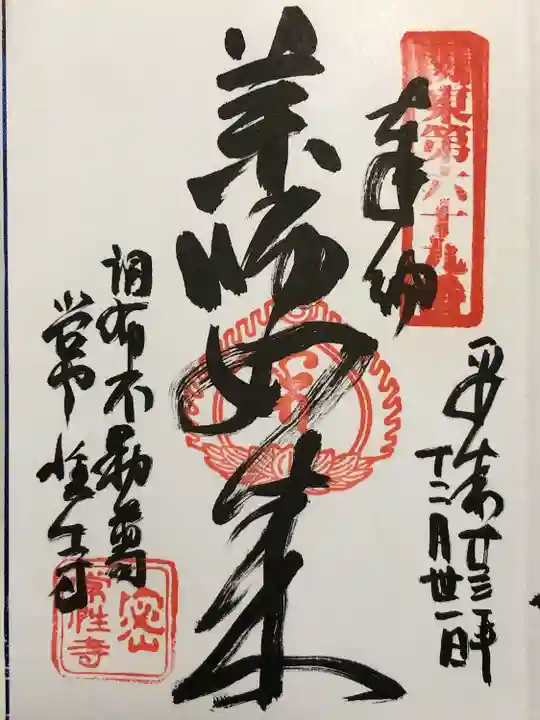 関東第六十九番
奉納
平成廿三年
十二月廿一日
薬師如来
調布不動尊
常性寺
密山
常性寺